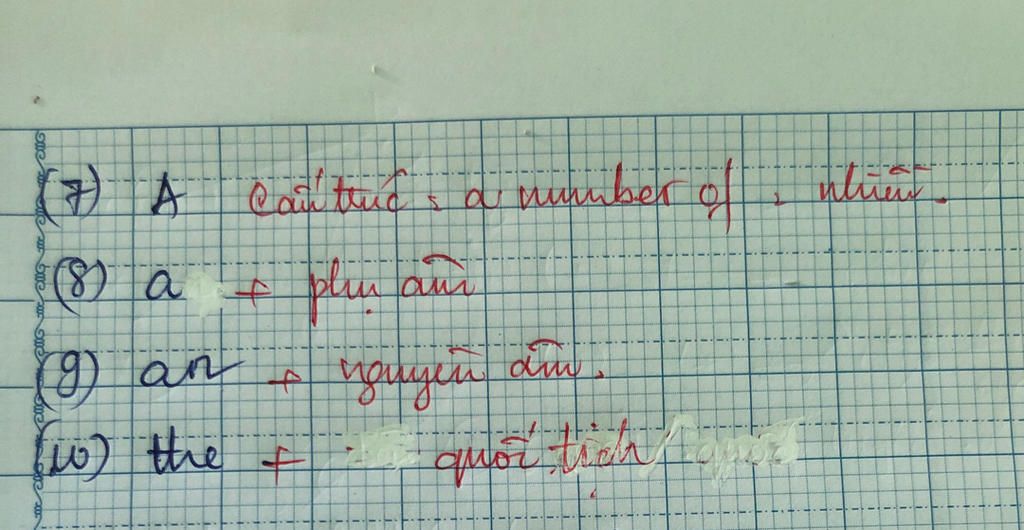 (7) A Cấu trúc : a number of : nhiều.
(8) a + phụ âm
(9) an + nguyên âm.
(10) the + quốc tịch